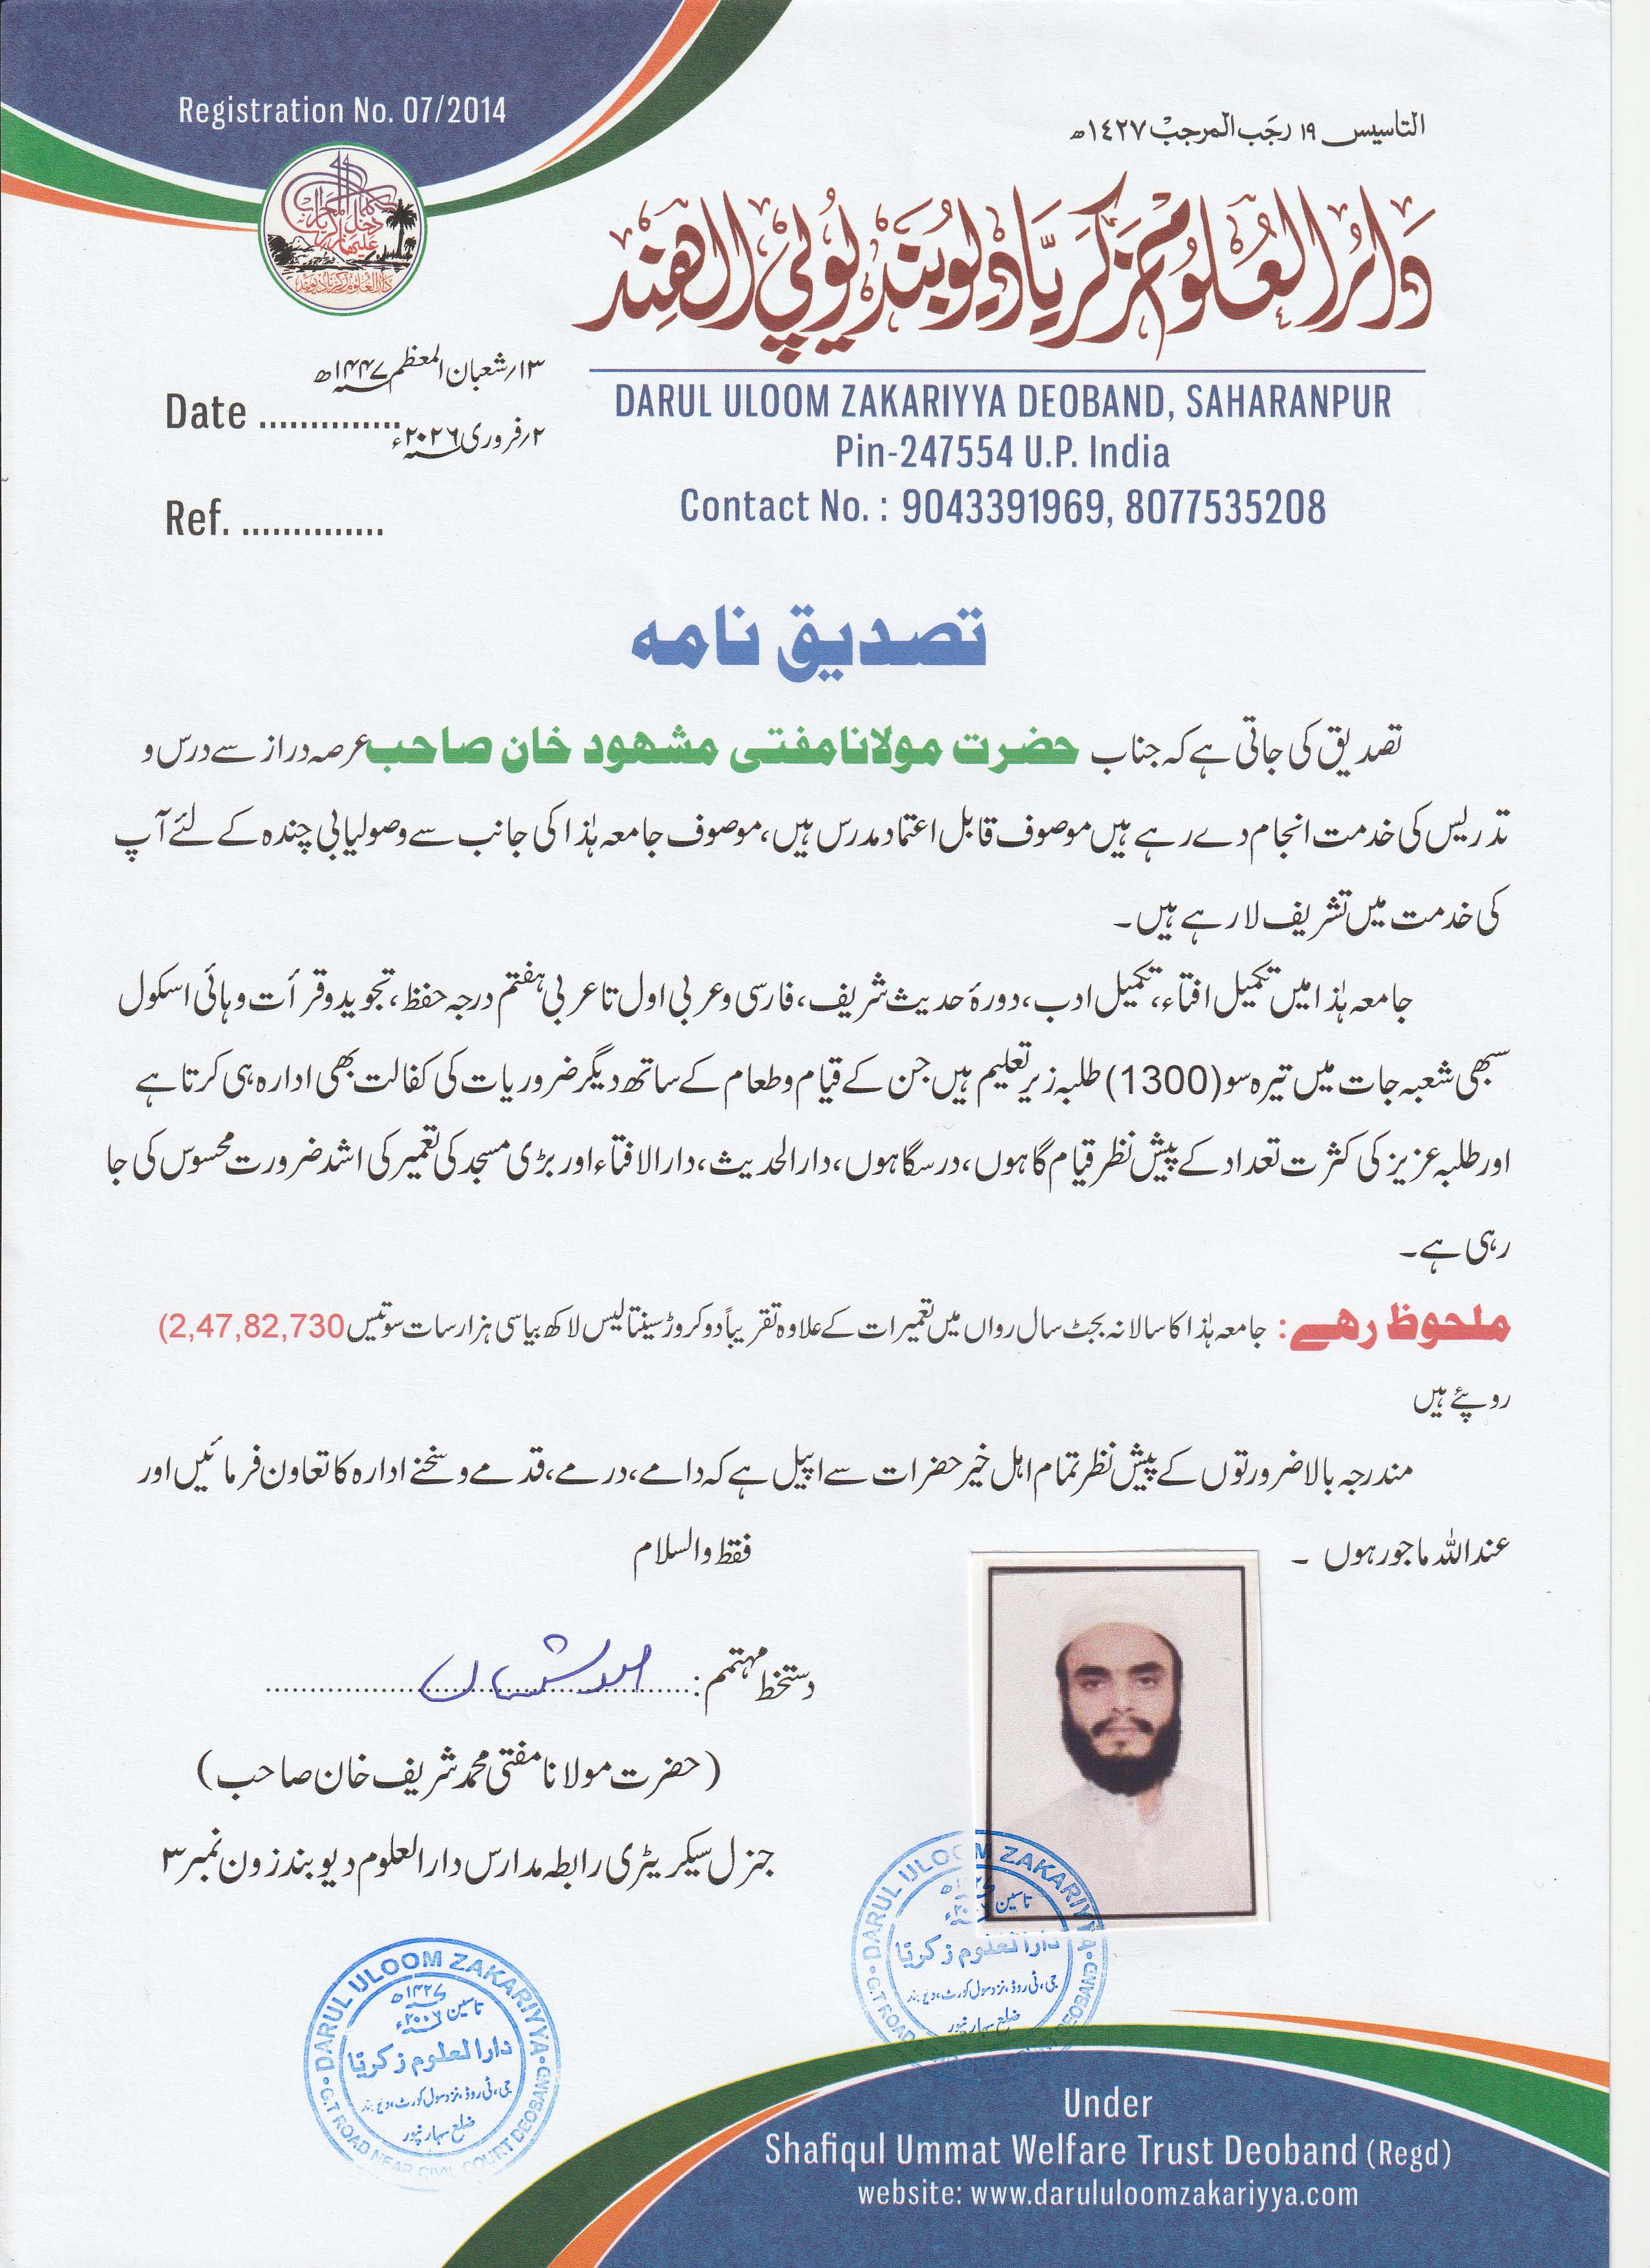 Registration No. 07/2014
التاسیس ۱۹ رجَب المرجبْ ۱٤۲۷ھ
دَارُالعُلُومْ زَکَرِیَّا دیُوبَند یُوپیُ الھَنِد
DARUL ULOOM ZAKARIYYA DEOBAND, SAHARANPUR
Pin-247554 U.P. India
Contact No. : 9043391969, 8077535208
۱۳/شعبان المعظم ۱۴۴۷ھ
Date ..............
۲/فروری ۲۰۲۶ء
Ref. ..............
تصدیق نامہ
تصدیق کی جاتی ہے کہ جناب حضرت مولانا مفتی مشھود خان صاحب عرصہ دراز سے درس و
تدریس کی خدمت انجام دے رہے ہیں موصوف قابل اعتماد مدرس ہیں، موصوف جامعہ ہٰذا کی جانب سے وصولیابی چندہ کے لئے آپ
کی خدمت میں تشریف لا رہے ہیں۔
جامعہ ہٰذا میں تکمیل افتاء، تکمیل ادب، دورۂ حدیث شریف، فارسی و عربی اول تا عربی ہفتم درجہ حفظ، تجوید و قرأت و ہائی اسکول
سبھی شعبہ جات میں تیرہ سو (1300) طلبہ زیر تعلیم ہیں جن کے قیام و طعام کے ساتھ دیگر ضروریات کی کفالت بھی ادارہ ہی کرتا ہے
اور طلبہ عزیز کی کثرت تعداد کے پیش نظر قیام گاہوں، درسگاہوں، دارالحدیث، دارالافتاء اور بڑی مسجد کی تعمیر کی اشد ضرورت محسوس کی جا
رہی ہے۔
ملحوظ رھے: جامعہ ہٰذا کا سالانہ بجٹ سال رواں میں تعمیرات کے علاوہ تقریباً دو کروڑ سینتالیس لاکھ بیاسی ہزار سات سو تیس 2,47,82,730)
روپئے ہیں
مندرجہ بالا ضرورتوں کے پیش نظر تمام اہل خیر حضرات سے اپیل ہے کہ دامے، درمے، قدمے و سخنے ادارہ کا تعاون فرمائیں اور
عنداللہ ماجور ہوں ۔
فقط والسلام
دستخط مہتمم: ................................................
(حضرت مولانا مفتی محمد شریف خان صاحب)
جنرل سیکریٹری رابطہ مدارس دارالعلوم دیوبند زون نمبر ۳
DARUL ULOOM ZAKARIYYA
تاسیس ۱۴۲۷ھ ۲۰۰۶ء
دارالعلوم زکریّا
جی، ٹی روڈ، نزد سول کورٹ، دیوبند
ضلع سہارنپور
G.T ROAD NEAR CIVIL COURT DEOBAND
DARUL ULOOM ZAKARIYYA
تاسیس
دارالعلوم زکریّا
جی، ٹی روڈ، نزد سول کورٹ، دیوبند
ضلع سہارنپور
G.T ROAD DEOBAND
Under
Shafiqul Ummat Welfare Trust Deoband (Regd)
website: www.darululoomzakariyya.com